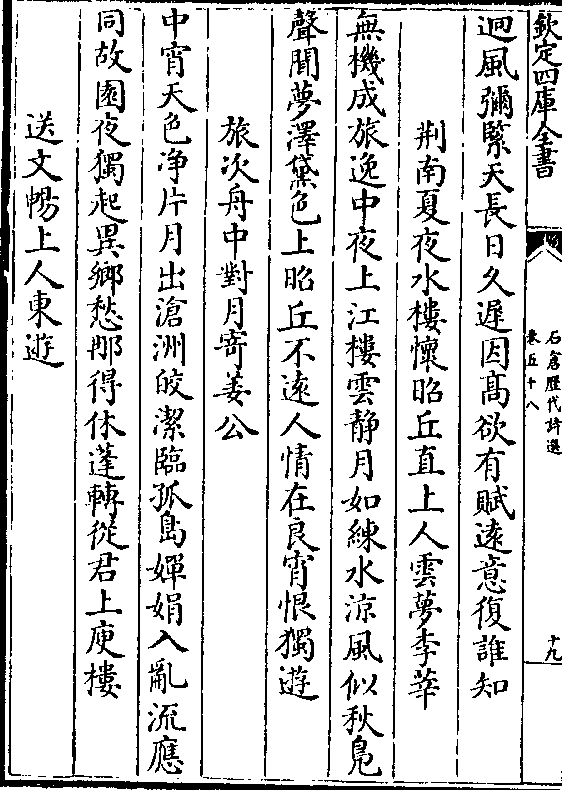 欽定四庫全書
石倉歷代詩選
卷五十八
十九
迥風彌緊天長日久遲因髙欲有賦逺意復誰知
荆南夏夜水樓懷昭丘直上人雲夢李莘
無機成旅逸中夜上江樓雲静月如練水涼風似秋鳬
聲聞夢澤黛色上昭丘不逺人情在良宵恨獨遊
旅次舟中對月寄姜公
中宵天色净片月出滄洲皎潔臨孤島嬋娟入亂流應
同故園夜獨起異鄉愁那得休蓬轉從君上庾樓
送文暢上人東遊